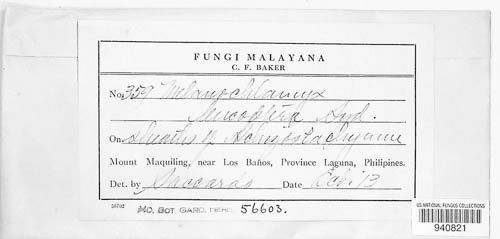 FUNGI MALAYANA
C. F. BAKER
No. 359 Melanochlamys
leucoptera Syd.
On sheaths of Schizostachyum
Mount Maquiling, near Los Baños, Province Laguna, Philipines.
Det. by Saccardo Date Oct. '13
MO. BOT GARD. HERB. 56603.
US NATIONAL FUNGUS COLLECTIONS
940821